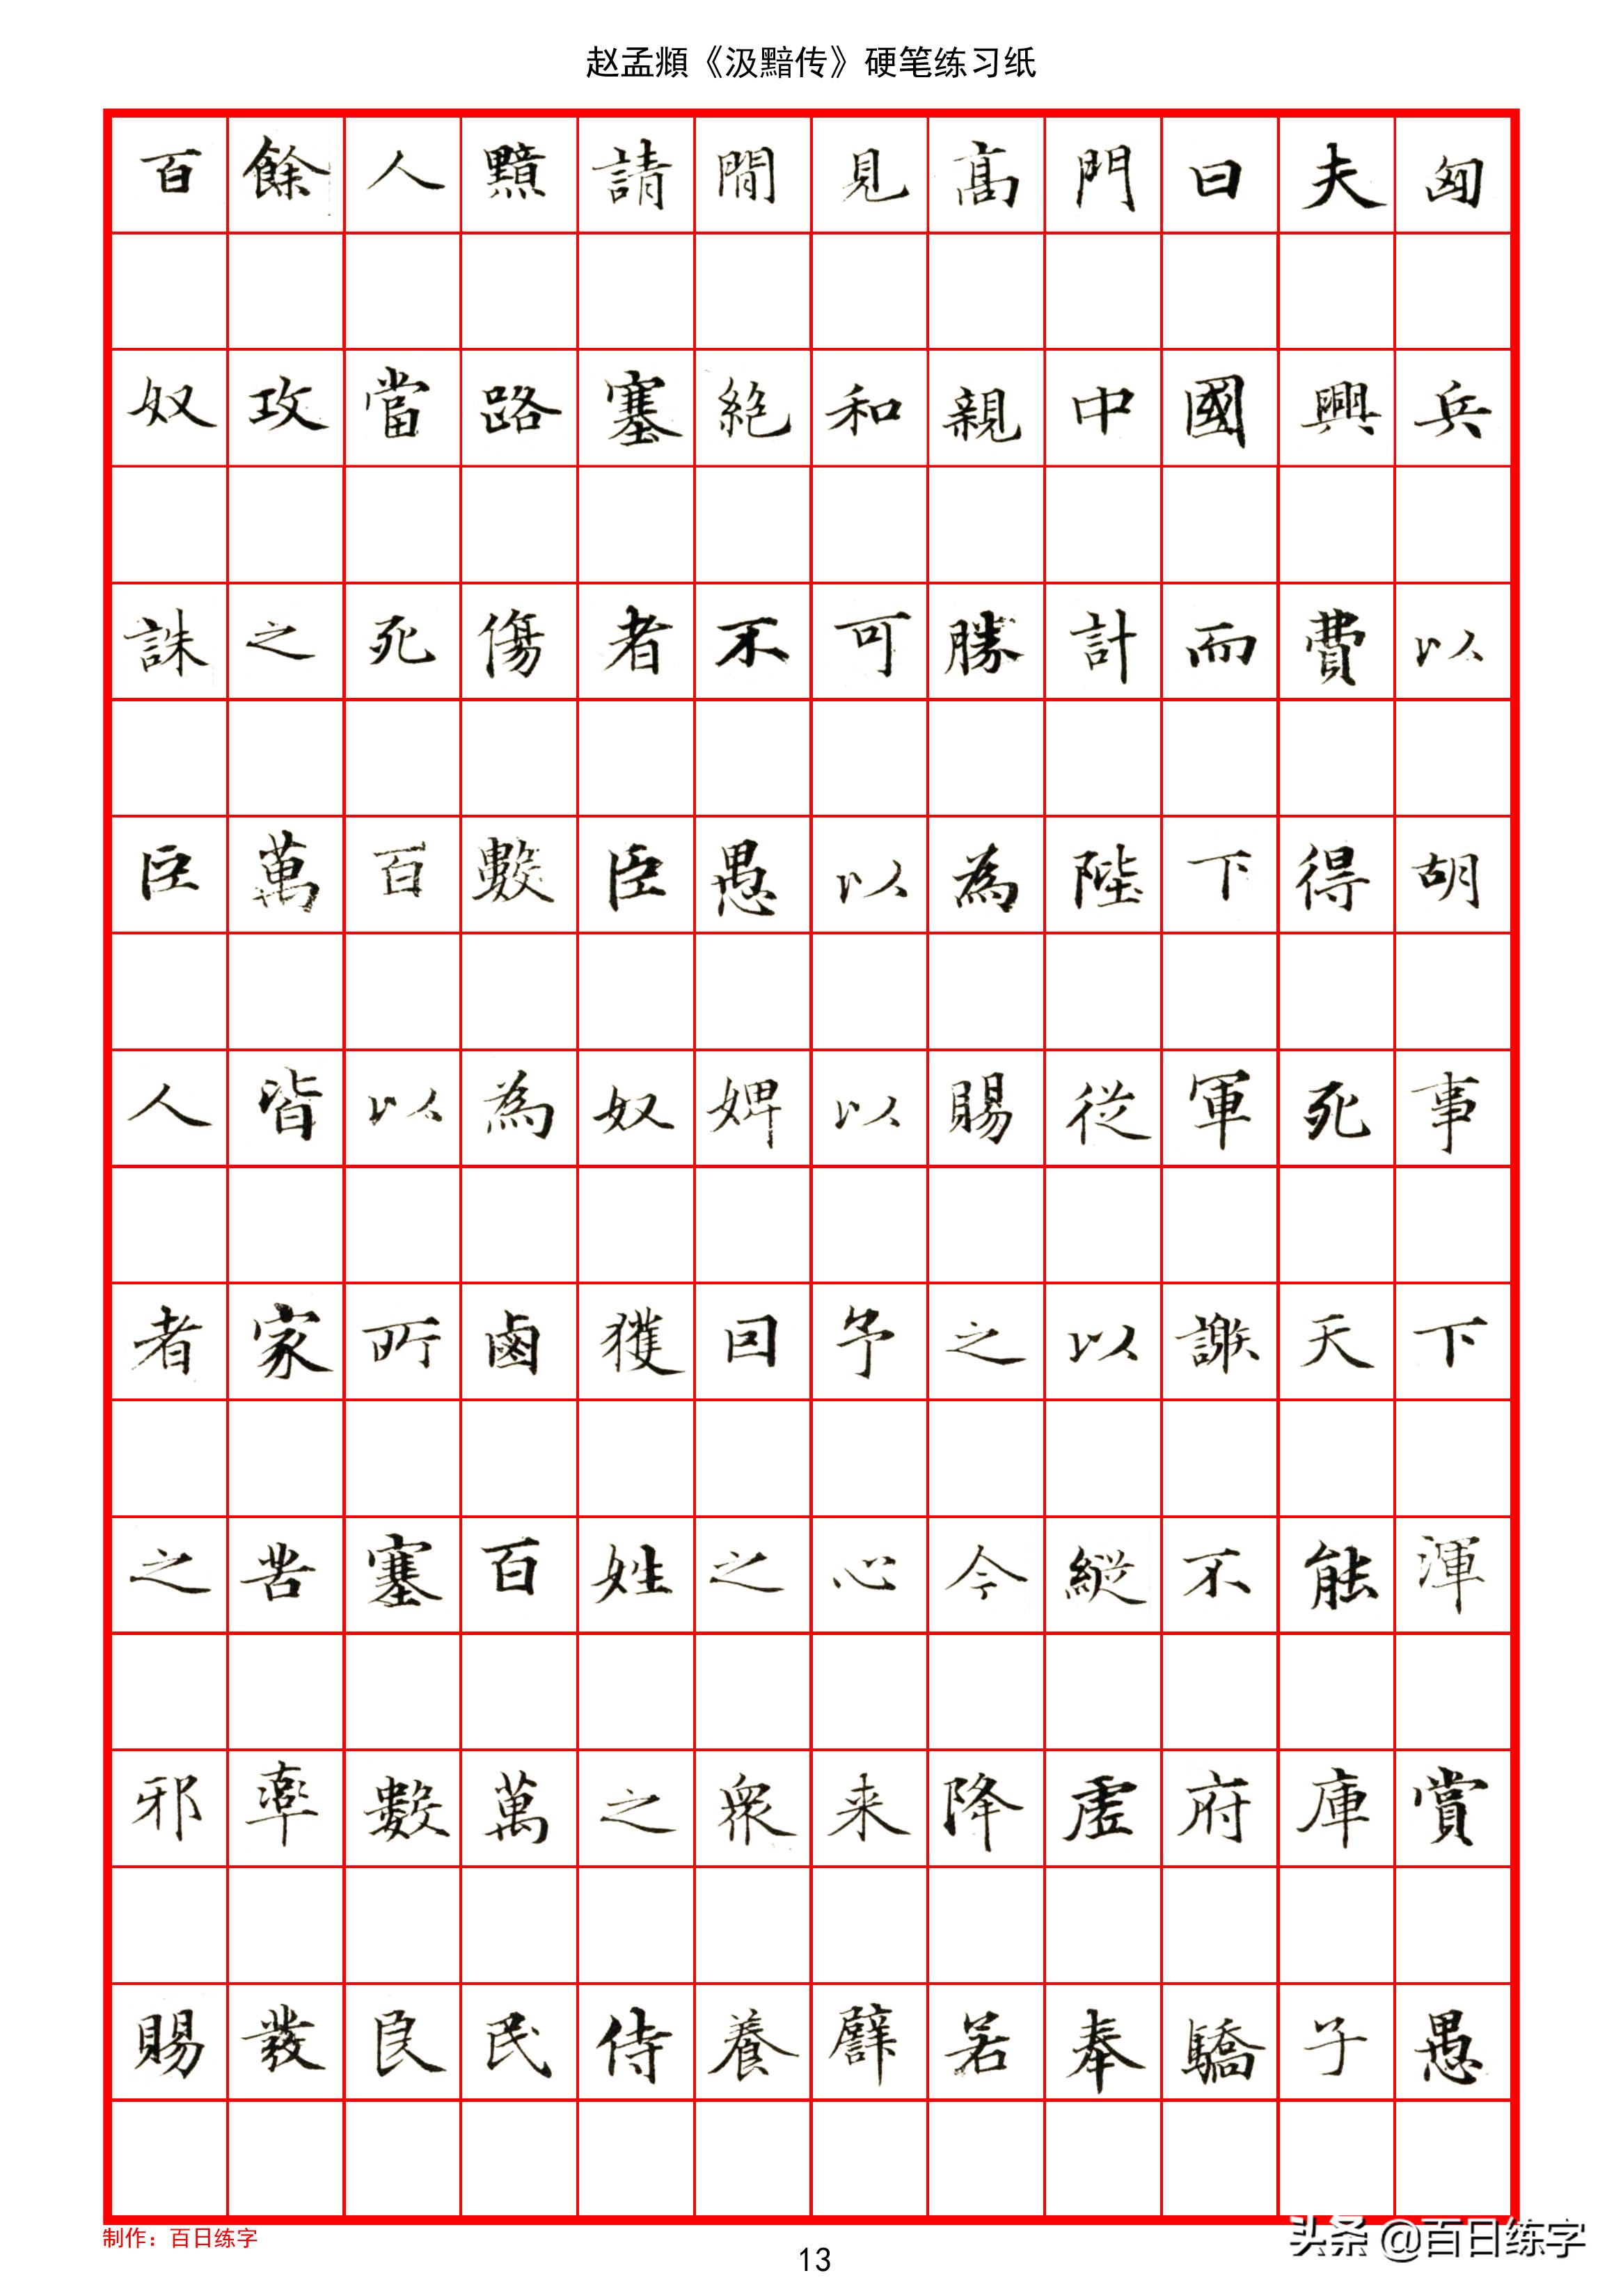 赵孟頫《汲黯传》硬笔练习纸
百餘人黯請閒見高門曰夫匈
奴攻當路塞絕和親中國興兵
誅之死傷者不可勝計而費以
臣萬百數臣愚以為陛下得胡
人皆以為奴婢以賜從軍死事
者家所鹵獲因予之以謝天下
之苦塞百姓之心今縱不能渾
邪率數萬之衆来降虛府庫賞
賜發良民侍養譬若奉驕子愚
制作：百日练字
13
头条 @百日练字